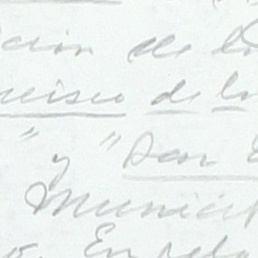 ción de lo
cisco de lo
" y " San
Municip
o. En rela